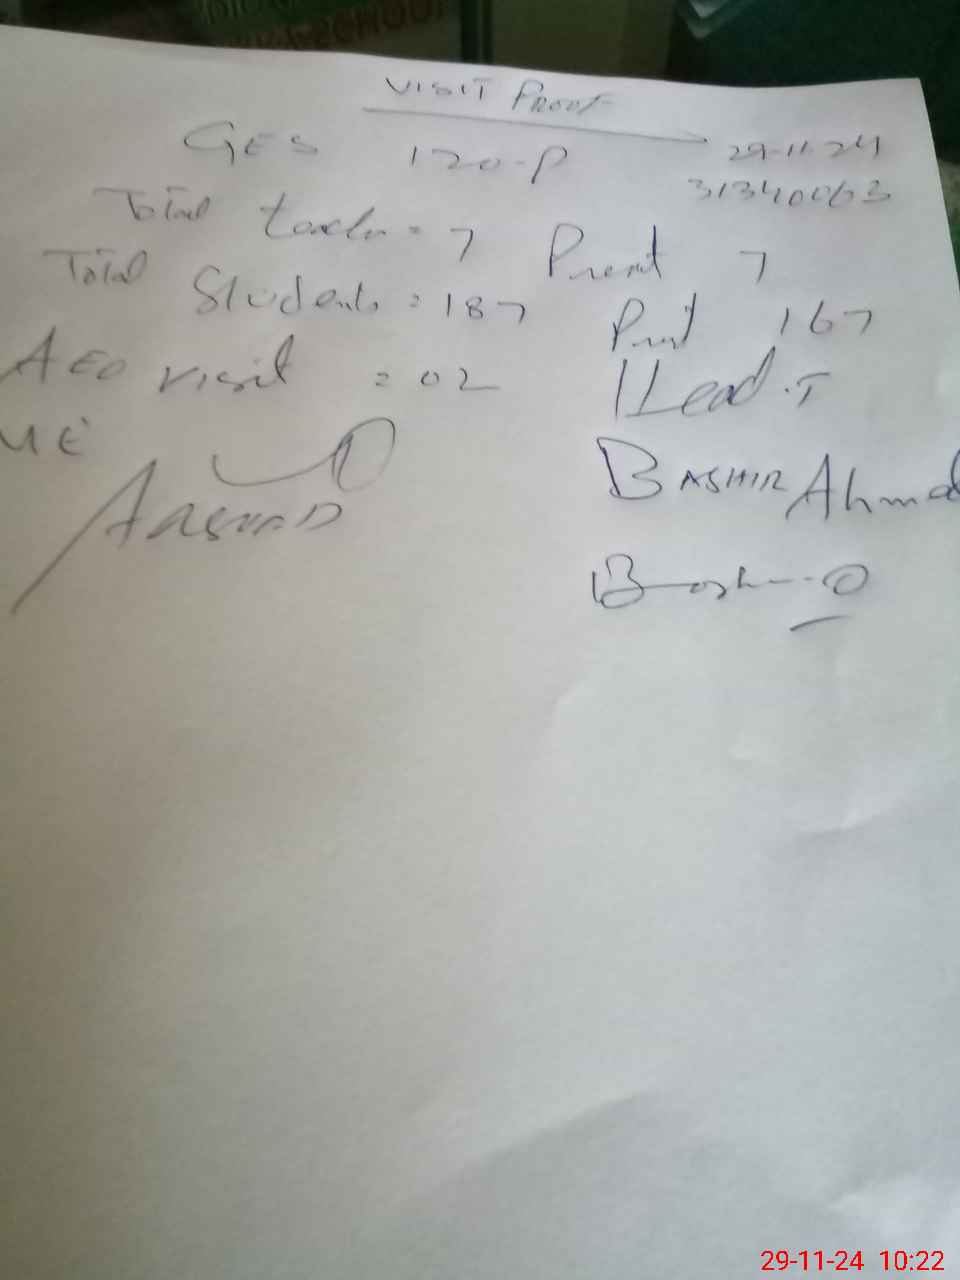 SCHOOL
VISIT PROOF
GES 120-P 29-11-24
31340063
Total teacher = 7 Present 7
Total Students = 187 Present 167
AEO visit = 02 Head.T
ME BASHIR Ahmad
29-11-24 10:22